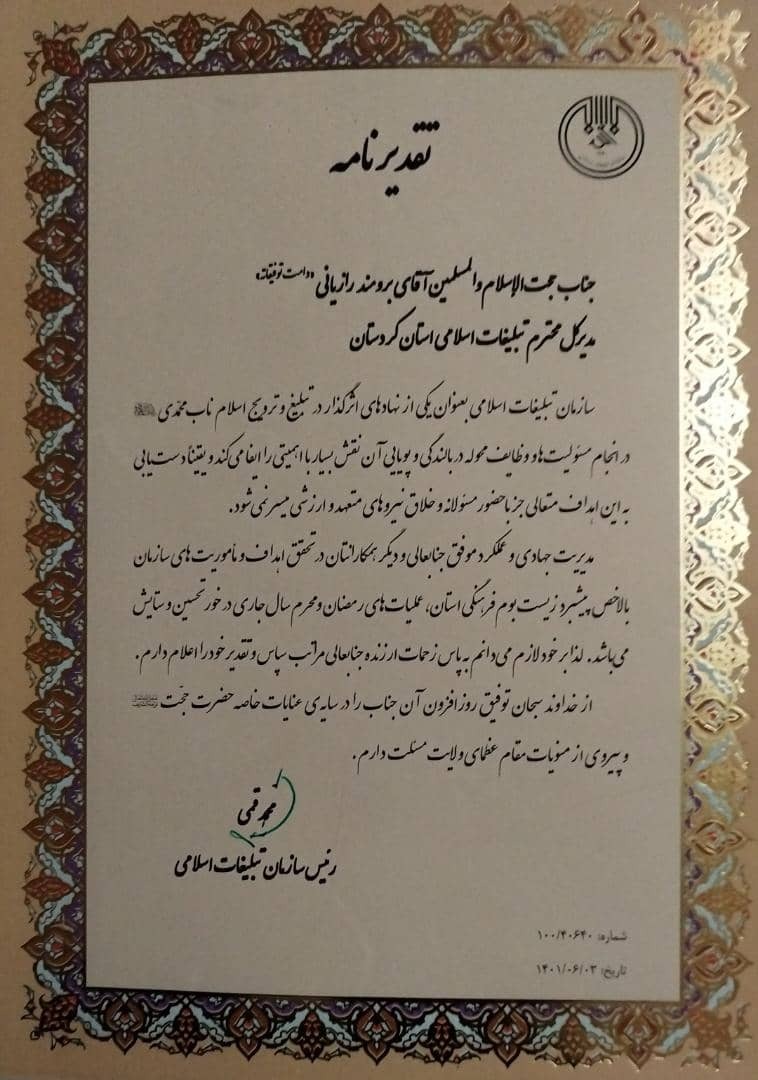 تقدیرنامه
جناب حجت الاسلام والمسلمین آقای برومند رازیانی «دامت توفیقاته»
مدیرکل محترم تبلیغات اسلامی استان کردستان
سازمان تبلیغات اسلامی بعنوان یکی از نهادهای اثرگذار در تبلیغ و ترویج اسلام ناب محمدی
در انجام مسئولیت ها و وظایف محوله در بالندگی و پویایی آن نقش بسیار با اهمیتی را ایفا می کند و یقیناً دست یابی
به این اهداف متعالی جز با حضور مسئولانه و خلاق نیروهای متعهد و ارزشی میسر نمی شود.
مدیریت جهادی و عملکرد موفق جنابعالی و دیگر همکارانتان در تحقق اهداف و مأموریت های سازمان
بالاخص پیشبرد زیست بوم فرهنگی استان، عملیات های رمضان و محرم سال جاری در خور تحسین و ستایش
می باشد. لذا بر خود لازم می دانم به پاس زحمات ارزنده جنابعالی مراتب سپاس و تقدیر خود را اعلام دارم.
از خداوند سبحان توفیق روزافزون آن جناب را در سایه ی عنایات خاصه حضرت حجّت
و پیروی از منویات مقام عظمای ولایت مسئلت دارم.
محمد قمی
رئیس سازمان تبلیغات اسلامی
شماره: ۱۰۰/۴۰۶۴۰
تاریخ: ۱۴۰۱/۰۶/۰۳